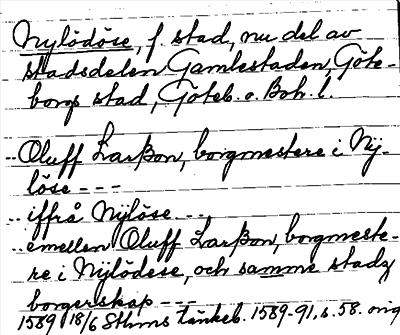 Nylödöse, f. stad, nu del av
stadsdelen Gamlestaden, Göte-
borgs stad, Göteb. o. Boh. l.
..Oluff Larßon, borgmestere i Nÿ-
löse - - -
..iffrå Nÿlöse - - -
..emellen Oluff Larßon, borgmeste-
re i Nÿlödese, och samme stadz
borgerskap - - -
1589 18/6 Sthms tänkeb. 1589-91, s. 58. orig